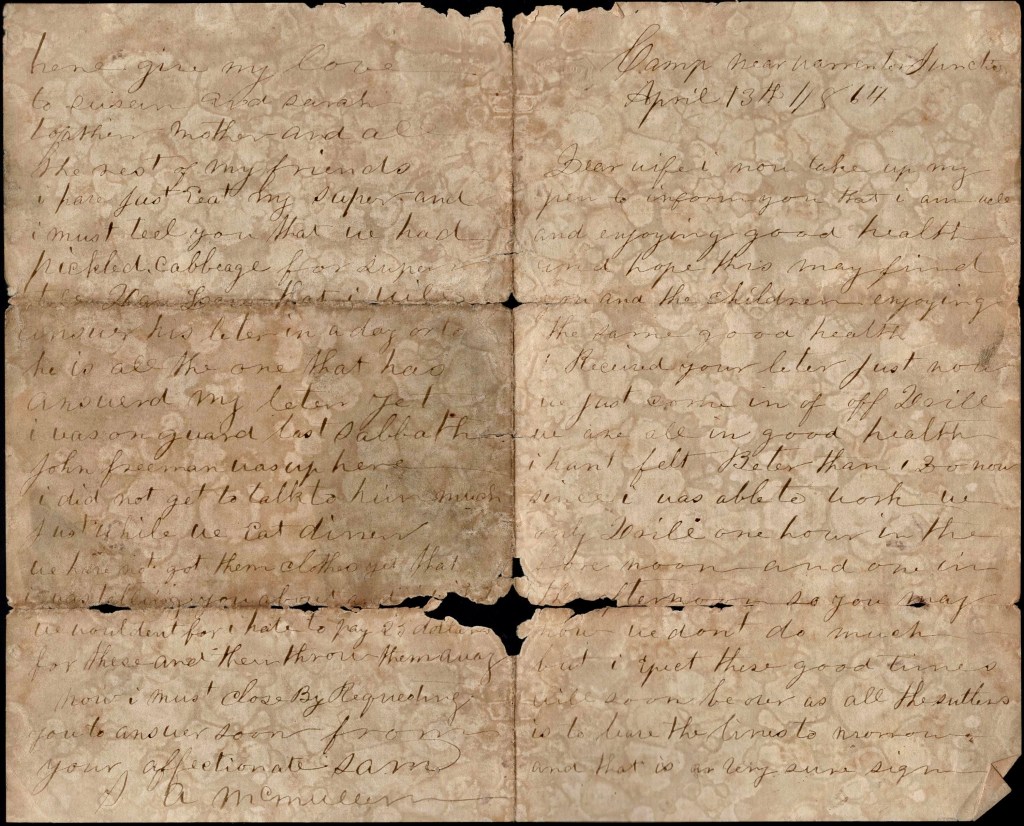 Camp near warrenton Junctio
April 13th 1864
Dear wife i now take up my
pen to inform you that i am well
and enjoying good health
and hope this may find
you and the children enjoying
the same good health
i Received your leter Just now
we just come in of off Drill
we are all in good health
i hant felt Beter than i Do now
since i was able to work we
only Drill one hour in the
fore noon and one in
the afternoon so you may
know we dont do much
but i expect these good times
will soon be over as all the sutlers
is to leave the lines to morrow
and that is a very sure sign
here give my love
to susan and sarah
to father mother and al
the rest of my friends
i have just eat my super and
i must tell you that we had
pickled cabbeage for super
tell that i will
answer his leter in a day or to
he is all the one that has
answerd my leter yet
i was on guard last sabbath
John freeman was up here
i did not get to talk to him much
just while we eat dinner
we have not got them clothes yet that
i was telling you about and
we wouldent for i hate to pay 25 dolears
for these and then throw them away
now i must close By Requesting
you to answer soon from
your affectionate Sam
S A mcmullen